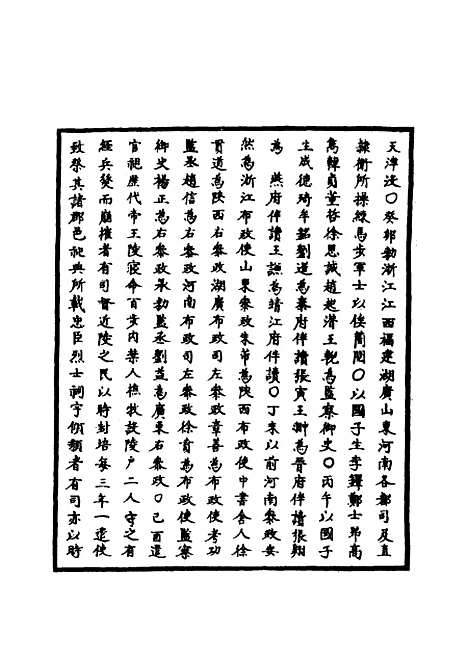 天津浚○癸卯勅浙江江西福建湖廣山東河南各都司及直
隸衛所操練馬步軍士以俟簡閱○以國子生李鐸鄭士昂高
嵩韓貞董哲徐思誠趙起潛王覲為監察御史○丙午以國子
生咸德琦牟銘劉道為秦府伴讀張寅王翀為晉府伴讀張翔
為 燕府伴讀王讓為靖江府伴讀○丁未以前河南參政安
然為浙江布政使山東參政朱芾為陝西布政使中書舍人徐
貫道為陝西右參政湖廣布政司左參政章善為布政使考功
監丞趙信為右參政河南布政司左參政徐賁為布政使監察
御史楊正為右參政承勅監丞劉益為廣東右參政○己酉遣
官祀歷代帝王陵寢命百步內禁人樵牧設陵戶二人守之有
經兵燹而崩摧者有司督近陵之民以時封培每三年一遣使
致祭其諸郡邑祀典所載忠臣烈士祠宇傾頹者有司亦以時